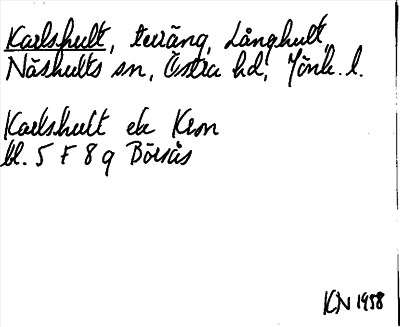 Karlshult, teräng, Långhult,
Näshults sn, Östra hd, Jönk. l.
Karlshult ek Kron
bl. 5 F 8 g Börsås
KN 1958